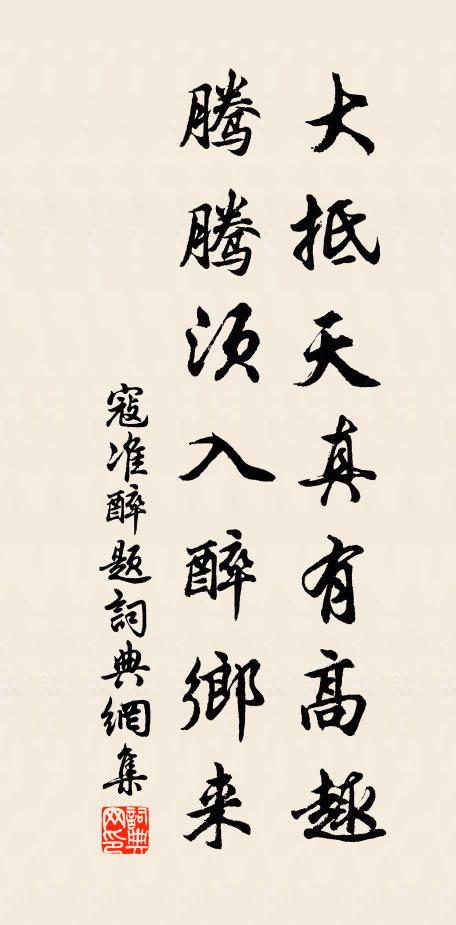 大抵天真有高趣
腾腾须入醉鄉来
寇准醉题詞典網集
詞典网印